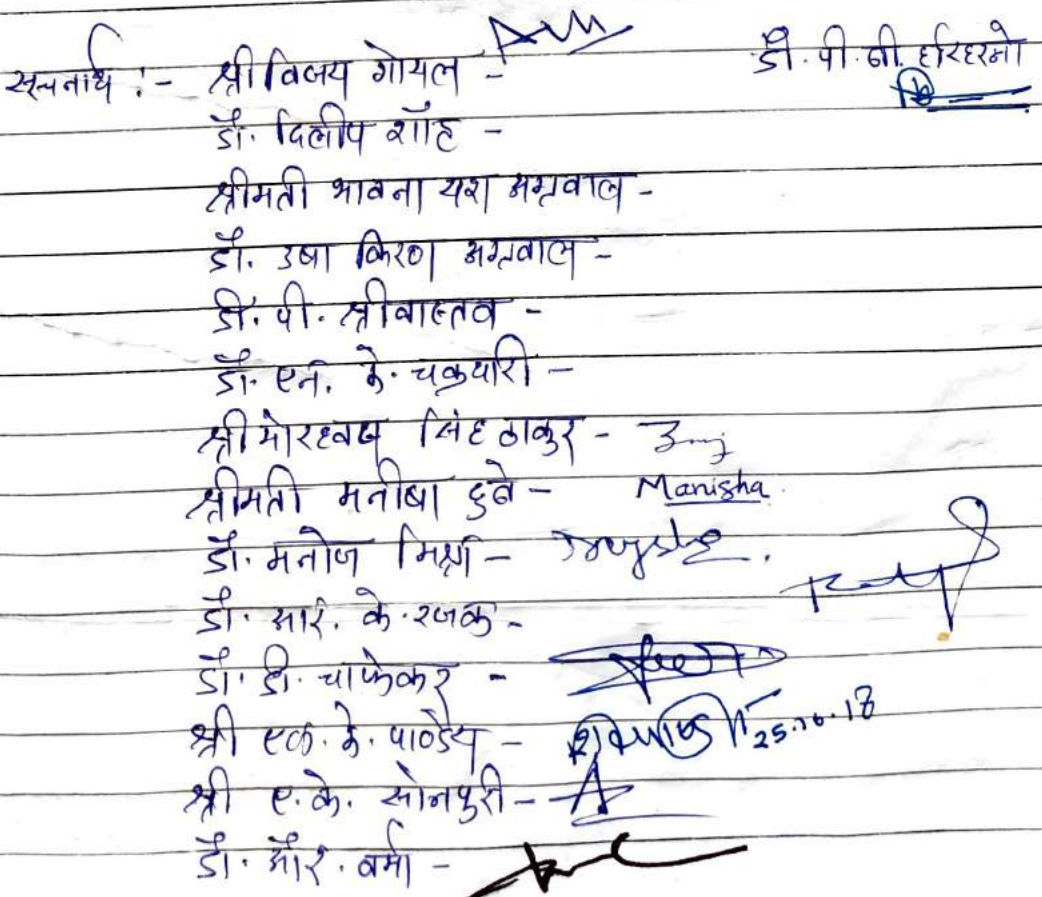 सूचनार्थ :- श्री विजय गोयल -
डॉ. पी. बी. हरिहरनो
डॉ. दिलीप शॉह -
श्रीमती भावना यश अग्रवाल -
डॉ. उषा किरण अग्रवाल -
डी. पी. श्रीवास्तव -
डॉ. एन. के. चक्रधारी -
श्री मोरध्वज सिंह ठाकुर -
श्रीमती मनीषा दुबे - Manisha
डॉ. मनोज मिश्रा -
डॉ. आर. के. रजक -
डॉ. डी. चाफेकर -
श्री एल. के. पाण्डेय - 25.10.18
श्री ए. के. सोनपुरी -
डॉ. आर. वर्मा -